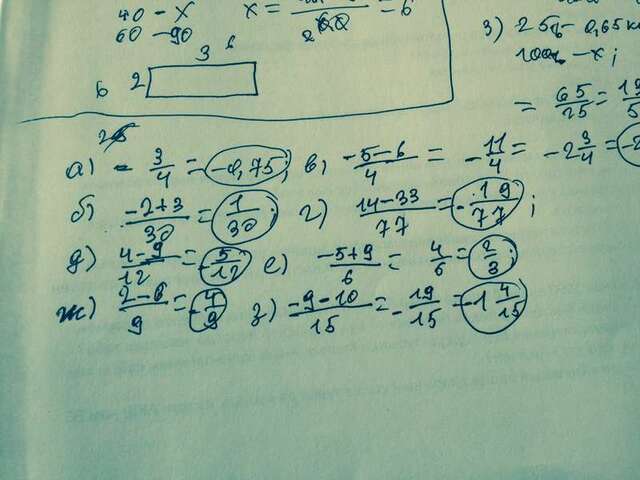 40 - x
60 - 90
x = = 6
3 6
б 2
3) 25ц - 0,65 кг
100ц - x;
= 65/25 = 13/5
а) - 3/4 = -0,75; в) -5-6/4 = -11/4 = -2 3/4 = -2
б) -2+3/30 = 1/30; г) 14-33/77 = -19/77;
д) 4-9/12 = -5/12 е) -5+9/6 = 4/6 = 2/3;
ж) 2-6/9 = -4/9 з) -9-10/15 = -19/15 = -1 4/15